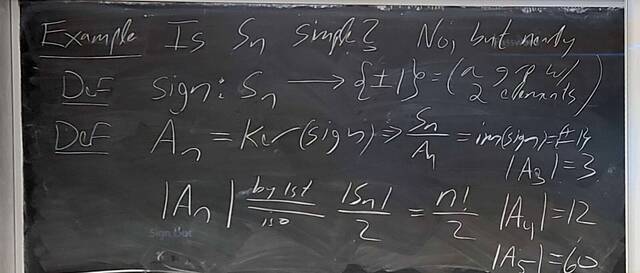 Example Is Sn simple? No, but nearly
Def sign: Sn → {±1} = (a grp w/ 2 elements)
Def An = Ker(sign) ⇒ Sn/An = im(sign) = {±1}
|A3| = 3
|An| = by 1st iso |Sn|/2 = n!/2 |A4| = 12
|A5| = 60